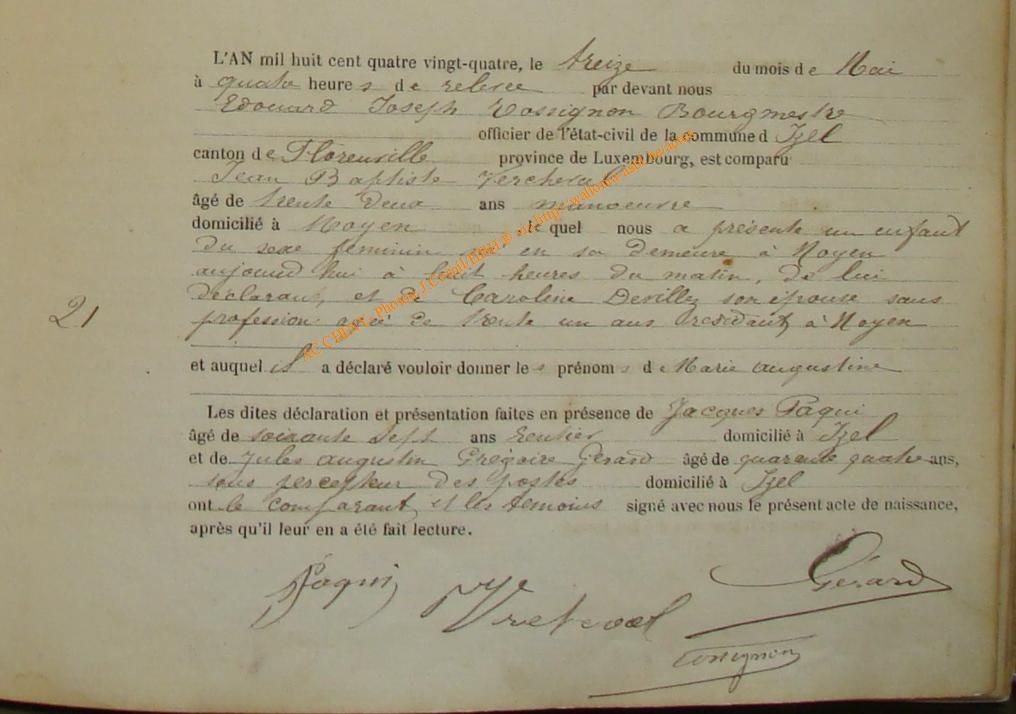 L'AN mil huit cent quatre vingt-quatre, le treize du mois de Mai
à quatre heures de relevée par devant nous
Edouard Joseph Rossignon Bourgmestre
officier de l'état-civil de la commune d Izel
canton de Florenville province de Luxembourg, est comparu
Jean Baptiste Vercheval
âgé de trente deux ans manoeuvre
domicilié à Moyen lequel nous a présenté un enfant
du sexe feminin né en sa demeure à Moyen
aujourd hui à huit heures du matin, de lui
déclarant, et de Caroline Devillez son épouse sans
21
profession agée de trente un ans residant à Moyen
et auquel il a déclaré vouloir donner les prénoms de Marie augustine
Les dites déclaration et présentation faites en présence de Jacques Paqui
âgé de soixante sept ans rentier domicilié à Izel
et de Jules augustin Grégoire Gerard âgé de quarente quatre ans,
sous percepteur des postes domicilié à Izel
ont le comparant et les temoins signé avec nous le présent acte de naissance,
après qu'il leur en a été fait lecture.
Paqui Gérard
Rossignon